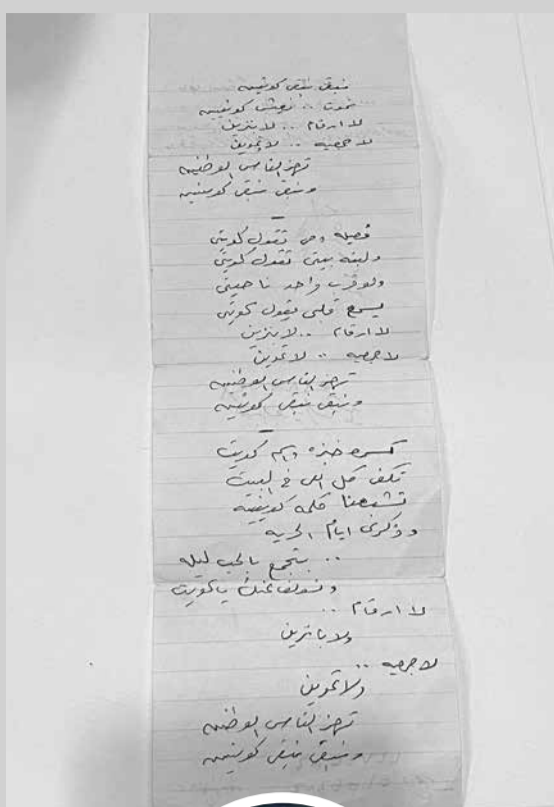 نبقى نبقى كويتيه
نموت .. نعيش كويتيه
لا ارقام .. لا بنزين
لا جمعيه .. لا تموين
تهز الناس الوطنيه
ونبقى نبقى كويتيه
فصيلة دمي تقول كويتي
ولبنة بيتي تقول كويتي
ولو قرب واحد ناحيتي
يسمع قلبي يقول كويتي
لا ارقام .. لا بنزين
لا جمعيه .. لا تموين
تهز الناس الوطنيه
ونبقى نبقى كويتيه
كسرة خبزه واسم كويت
تكفي كل اللي في البيت
تشبعنا كلمة كويتيه
وذكرى ايام الحريه
.. بتجمع بالحب ليله
ونسولف عنك يا كويت
لا ارقام ..
ولا بنزين
لا جمعيه ..
ولا تموين
تهز الناس الوطنيه
ونبقى نبقى كويتيه